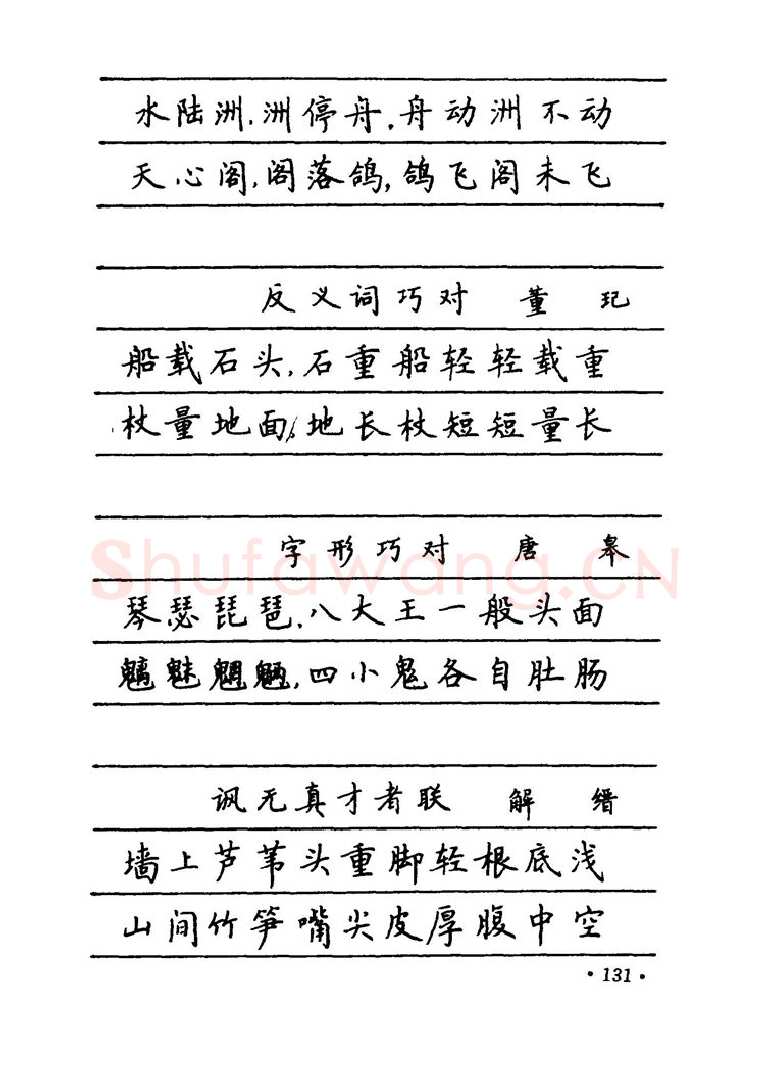 水陆洲,洲停舟,舟动洲不动
天心阁,阁落鸽,鸽飞阁未飞
反义词巧对 董玘
船载石头,石重船轻轻载重
杖量地面,地长杖短短量长
字形巧对 唐皋
琴瑟琵琶,八大王一般头面
魑魅魍魉,四小鬼各自肚肠
讽无真才者联 解缙
墙上芦苇头重脚轻根底浅
山间竹笋嘴尖皮厚腹中空
·131·
Shufawang.CN